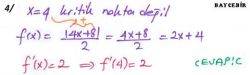 4/ x=4 kritik nokta değil BAYCEBİR
f(x) = |4x+8|/2 = 4x+8/2 = 2x+4
f'(x)=2 ⇒ f'(4)=2 CEVAP:C